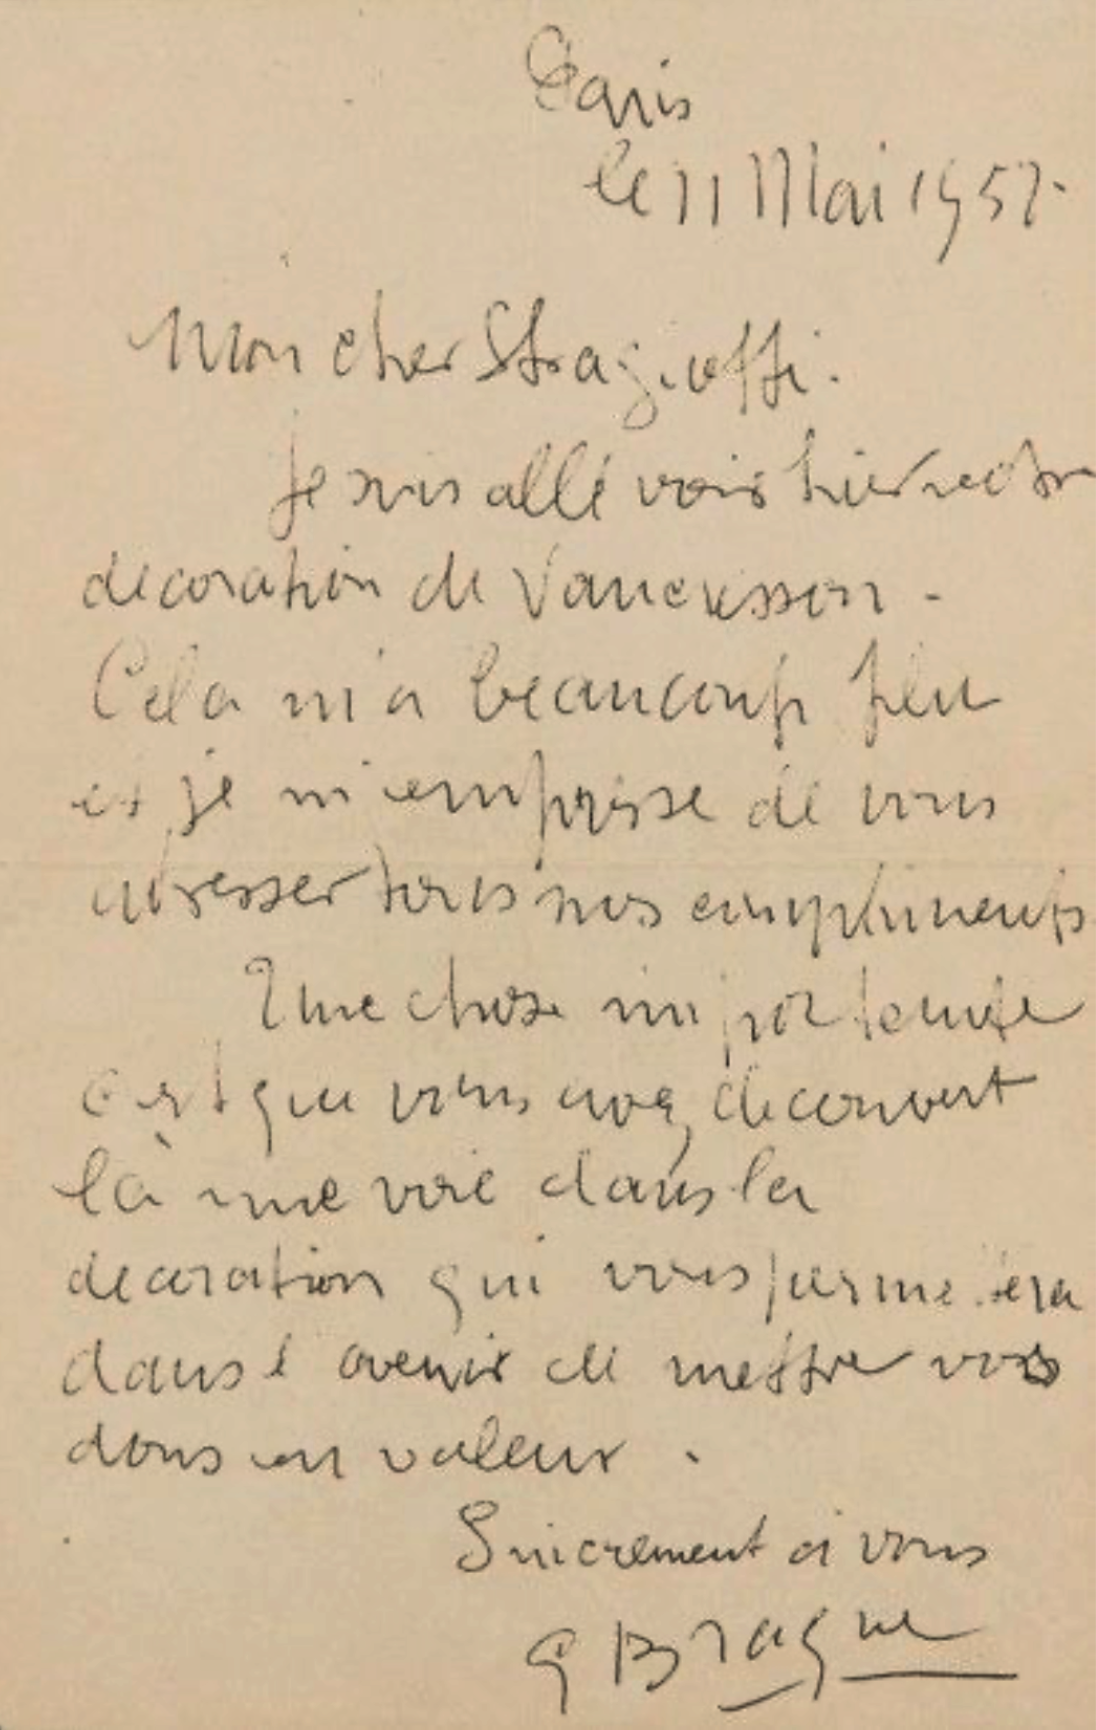 Paris
le 11 Mai 1957.
Mon cher Stragiotti.
Je suis allé voir hier votre
décoration de Vaucresson -
Cela m'a beaucoup plu
et je m'empresse de vous
adresser tous mes compliments
Une chose importante
c'est que vous avez découvert
là une voie dans la
decoration qui vous permettra
dans l'avenir de mettre vos
dons en valeur.
Sincèrement à vous
G Braque